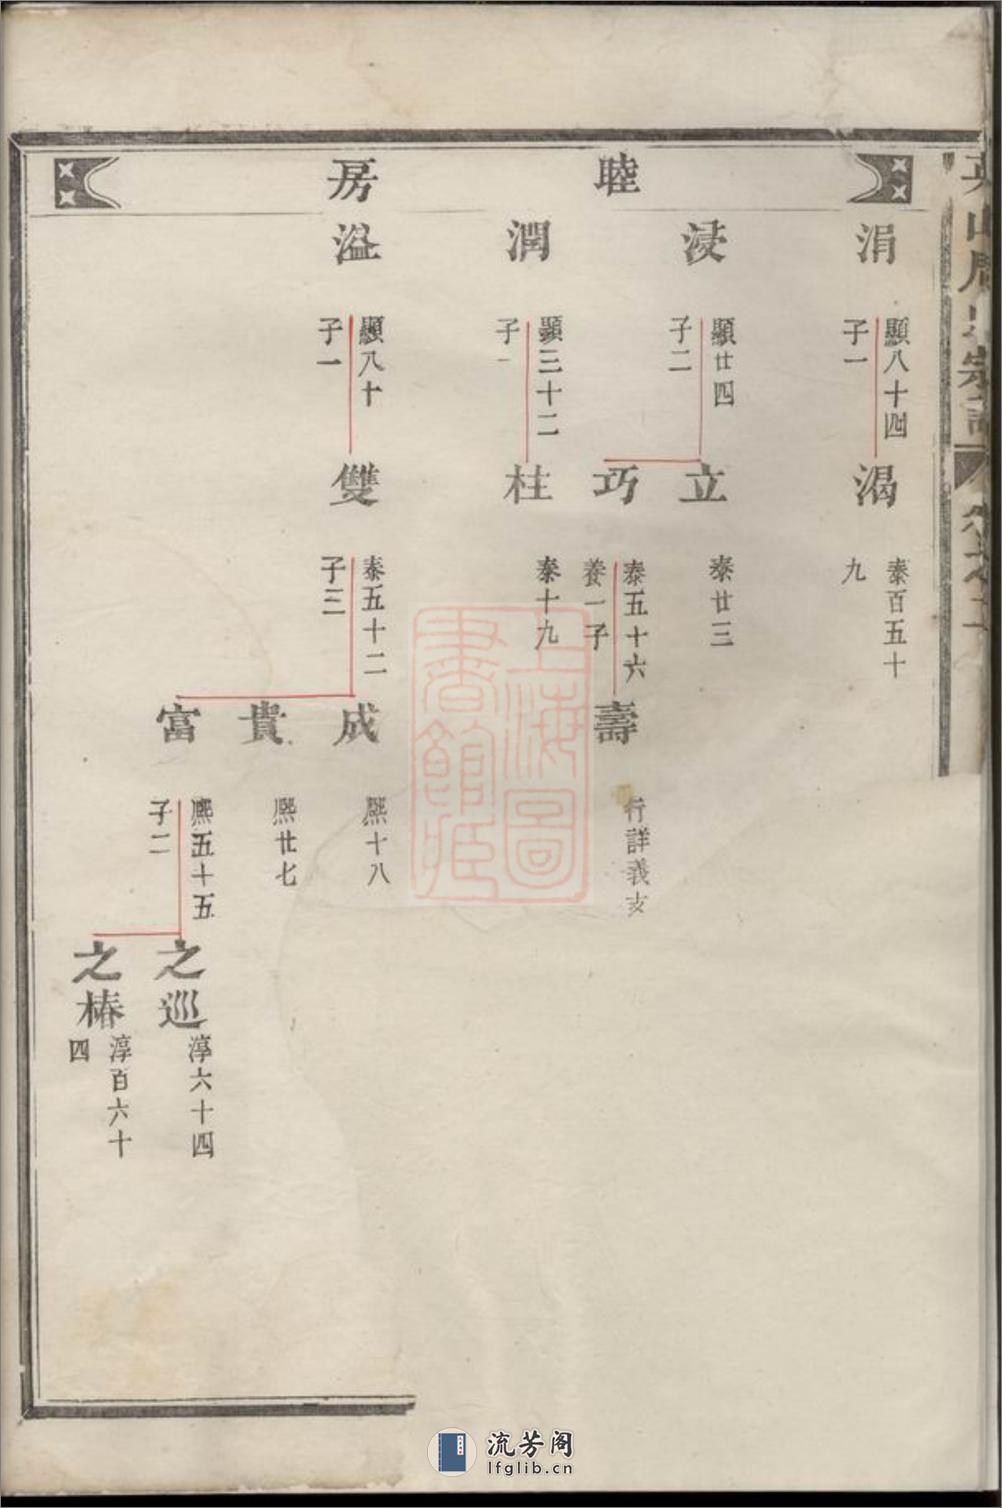 睦房
涓
顯八十四
子一
渴
泰百五十
九
浸
顯廿四
子二
立
泰廿三
巧
泰五十六
養一子
壽
行詳義支
潤
顯三十二
子一
柱
泰十九
溢
顯八十
子一
雙
泰五十二
子三
成
熙十八
貴
熙廿七
富
熙五十五
子二
之巡
淳六十四
之椿
淳百六十
四
上海圖
書館藏
流芳阁
lfglib.cn